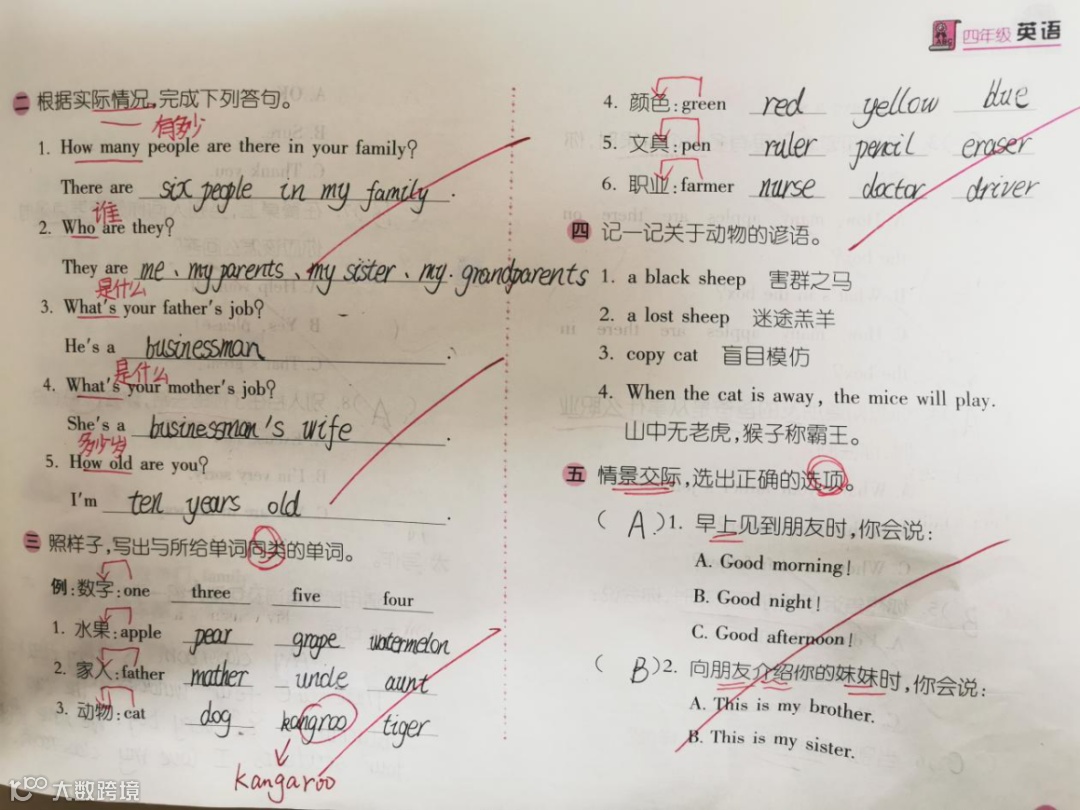 四年级 英语
二 根据实际情况,完成下列答句。
有多少
1. How many people are there in your family?
There are six people in my family.
谁
2. Who are they?
They are me、my parents、my sister、my grandparents
是什么
3. What's your father's job?
He's a businessman.
是什么
4. What's your mother's job?
She's a businessman's wife.
多少岁
5. How old are you?
I'm ten years old.
三 照样子,写出与所给单词同类的单词。
例:数字:one three five four
1. 水果:apple pear grape watermelon
2. 家人:father mather uncle aunt
3. 动物:cat dog kangroo tiger
kangaroo
4. 颜色:green red yellow blue
5. 文具:pen ruler pencil eraser
6. 职业:farmer nurse doctor driver
四 记一记关于动物的谚语。
1. a black sheep 害群之马
2. a lost sheep 迷途羔羊
3. copy cat 盲目模仿
4. When the cat is away, the mice will play.
山中无老虎,猴子称霸王。
五 情景交际,选出正确的选项。
( A )1. 早上见到朋友时,你会说:
A. Good morning!
B. Good night!
C. Good afternoon!
( B )2. 向朋友介绍你的妹妹时,你会说:
A. This is my brother.
B. This is my sister.
大数跨境